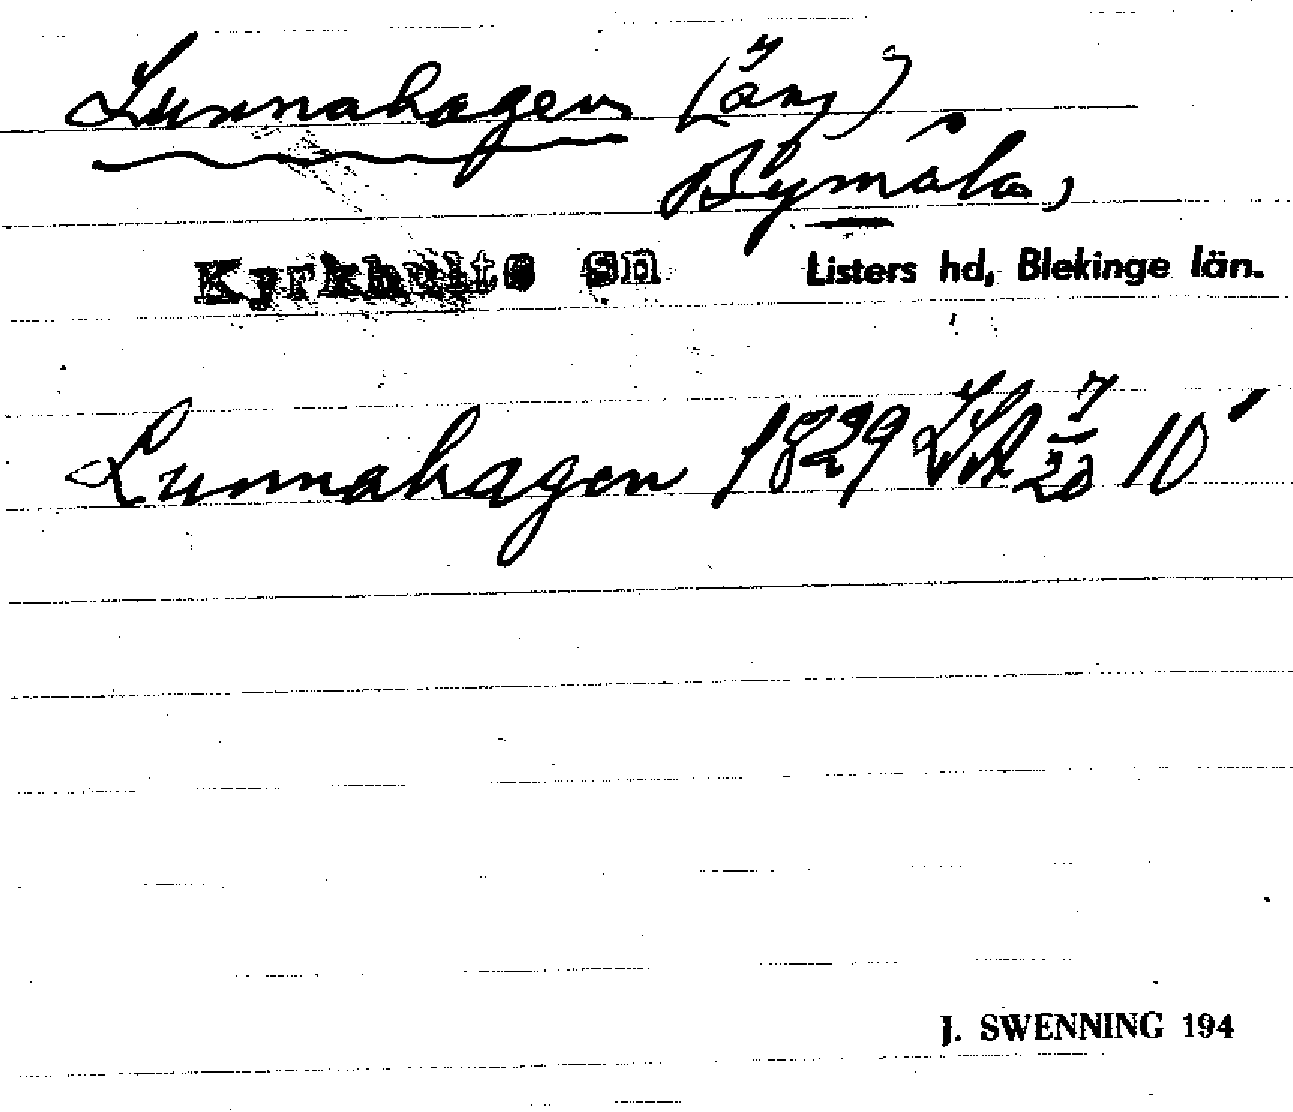 Lunnahagen (äng)
Bymåla,
Kyrkhults sn Listers hd, Blekinge län.
Lunnahagen 1829 LSA 7/20 10'
J. SWENNING 194